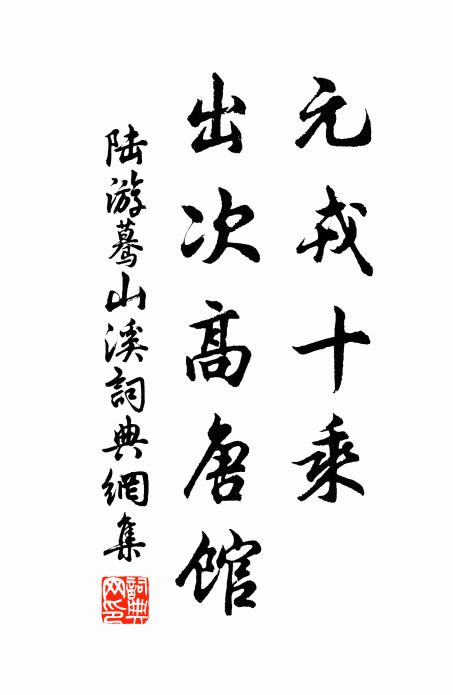 元戎十乘
出次高唐馆
陆游蓦山溪詞典網集
詞典网印